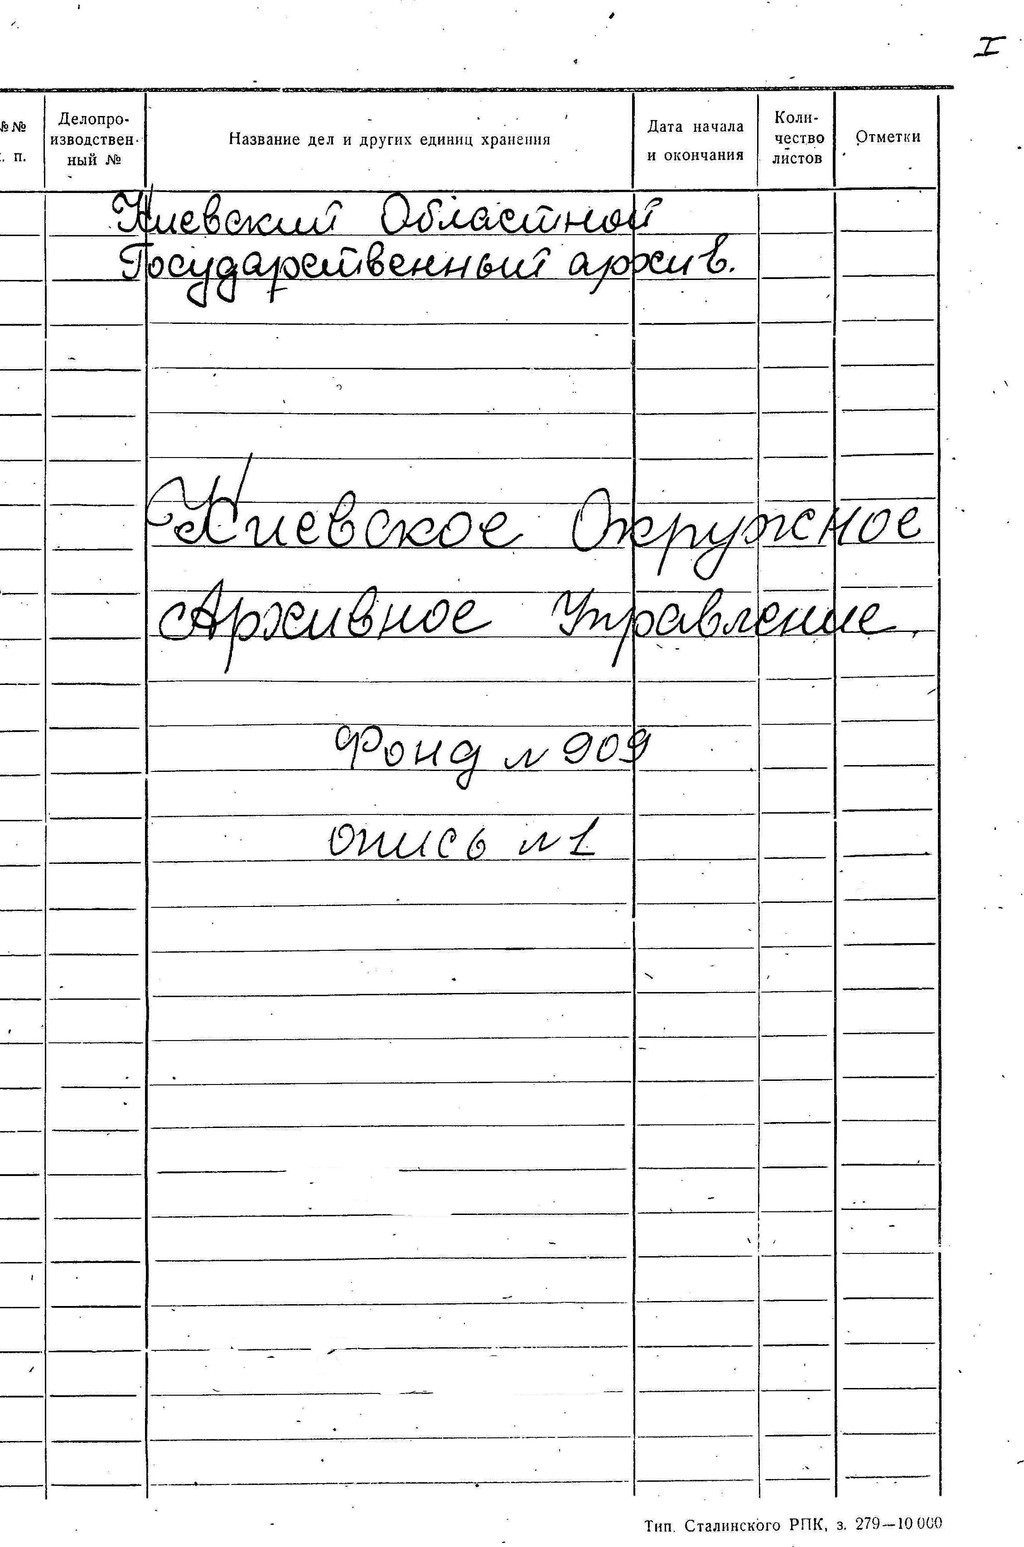 I
№№
п. п.
Делопро-
изводствен-
ный №
Название дел и других единиц хранения
Дата начала
и окончания
Коли-
чество
листов
Отметки
Киевский Областной
Государственный архив.
Киевское Окружное
Архивное Управление.
Фонд № 909
опись № 1
Тип. Сталинского РПК, з. 279—10 000